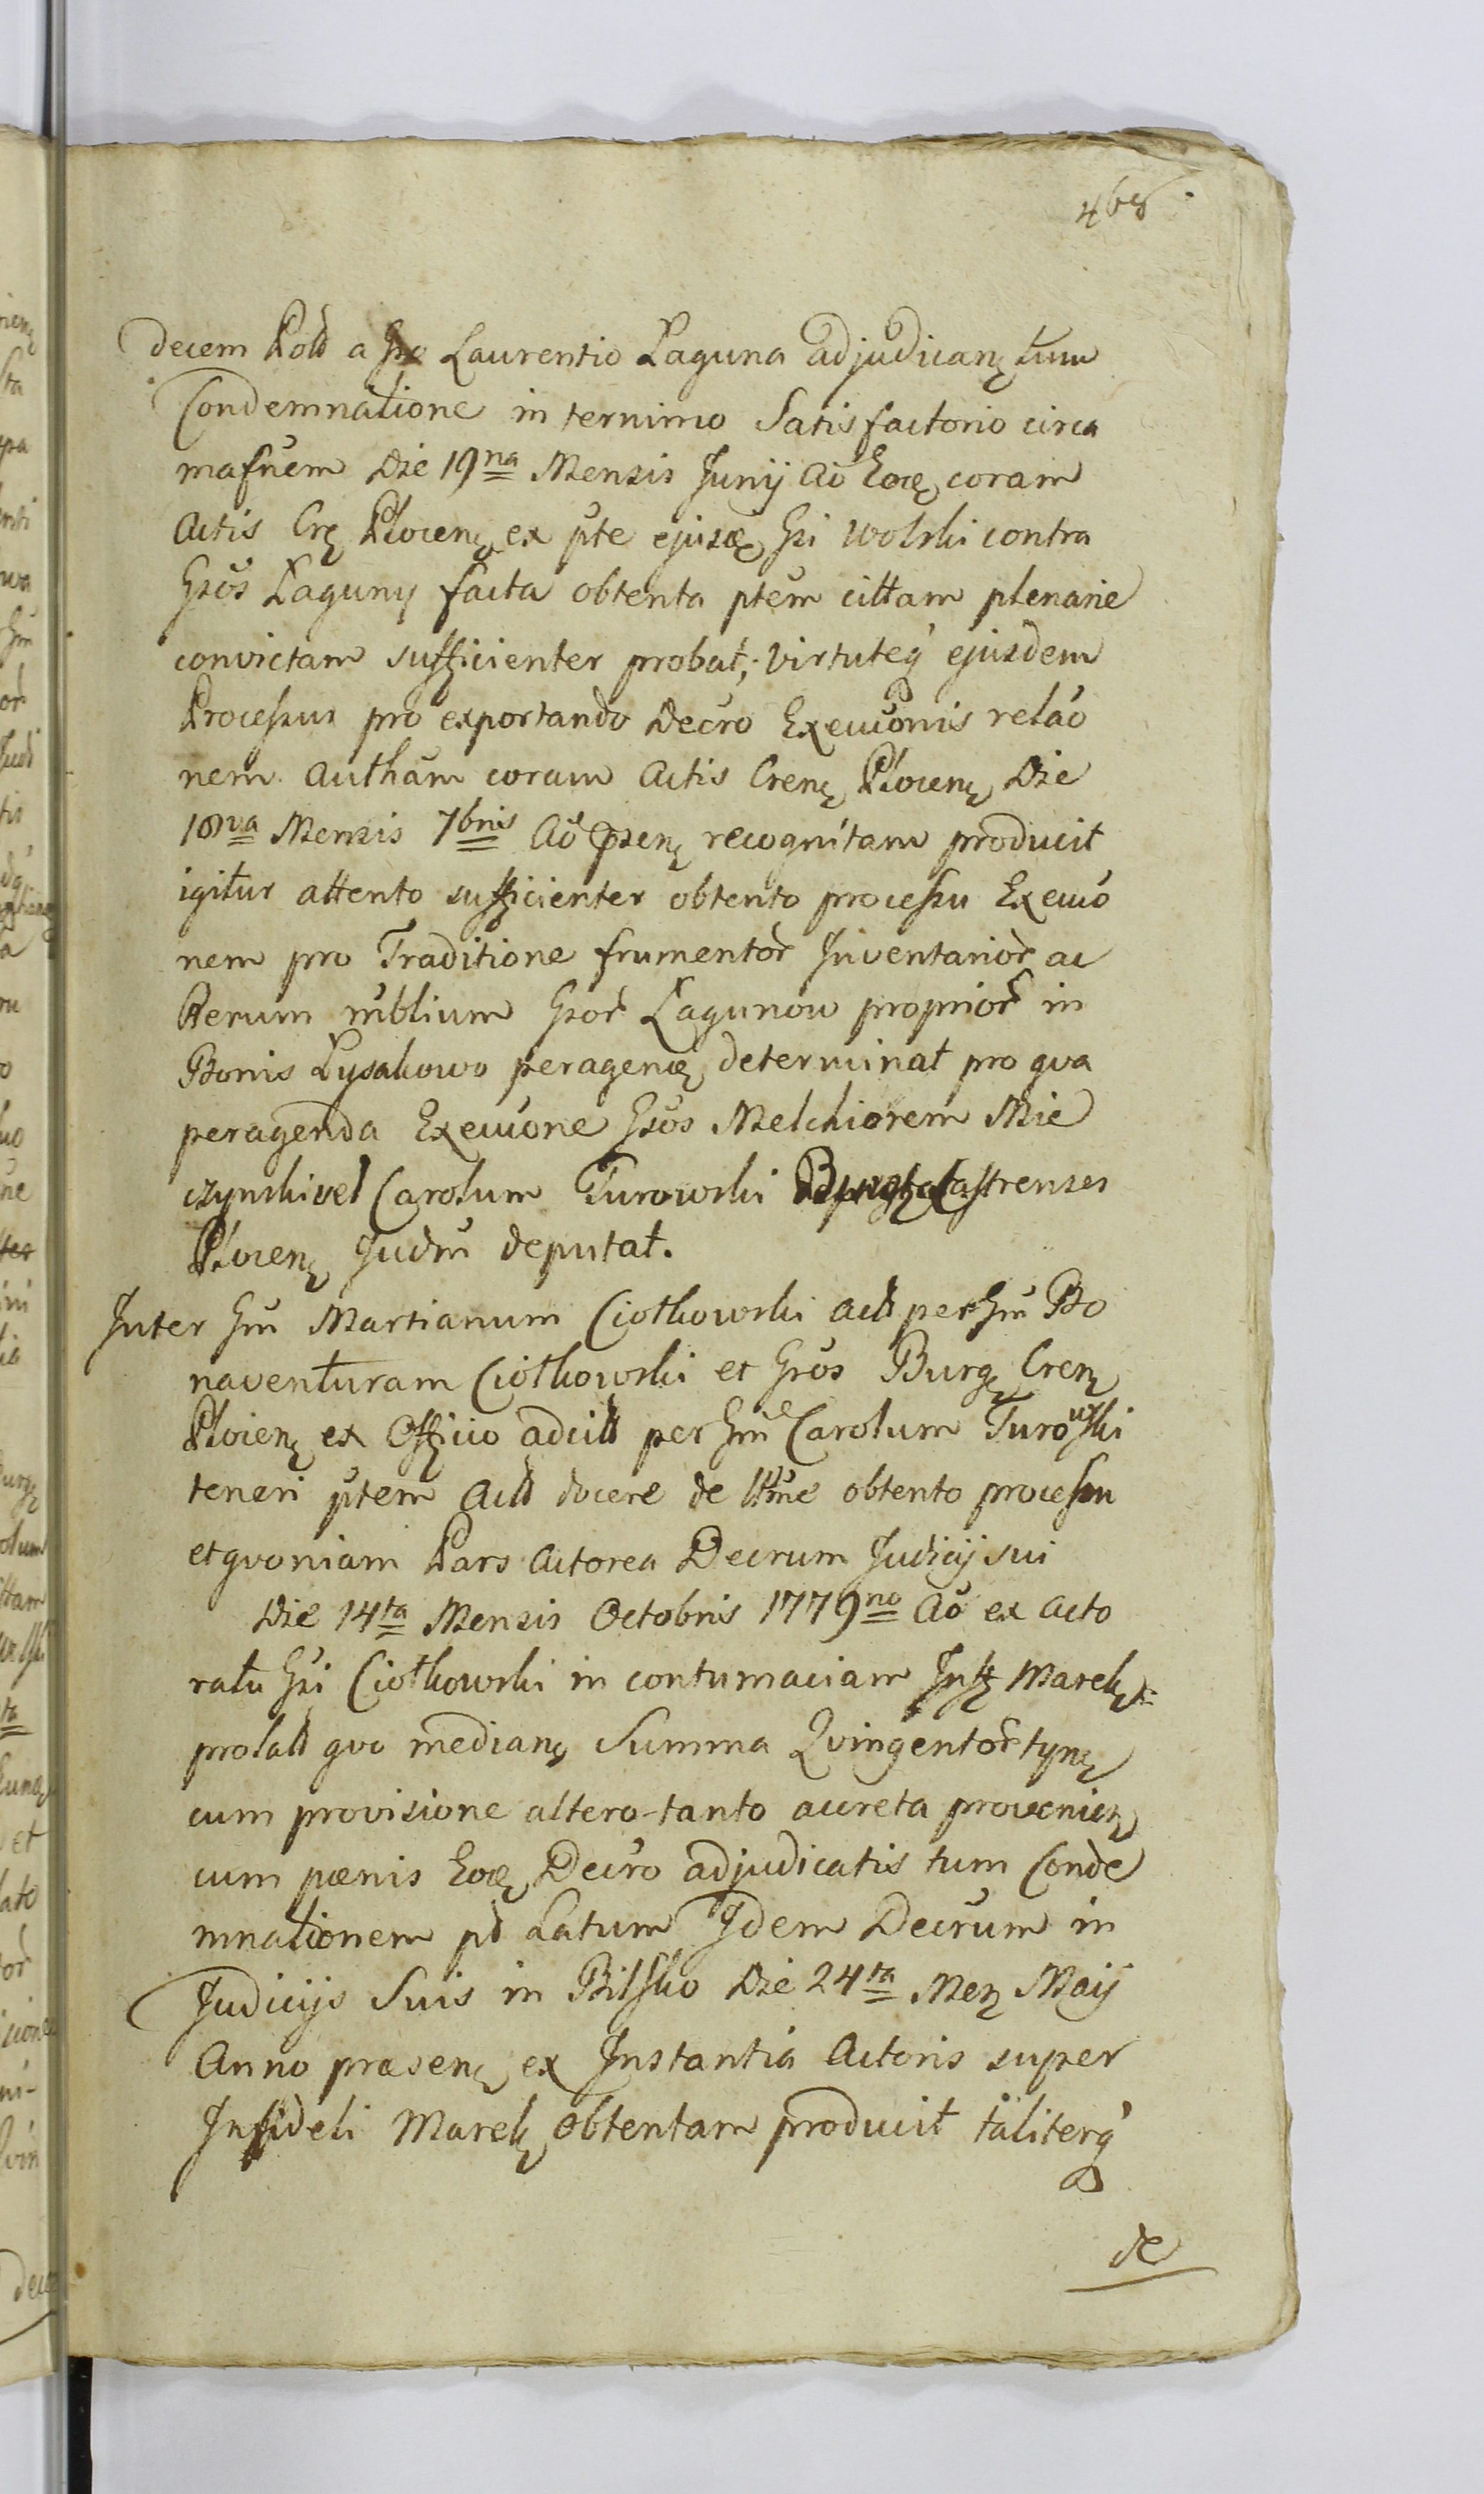 468
decem Pold a Gso Laurentio Laguna adjudican tum
Condemnatione in ternimo Satisfactorio circa
Die 19na Mensis Junij Ao Eoę coram
Actis Crę Plocenę ex pte ejusdę Gsi Wolski contra
Gsos Laguny facta obtenta ptem cittam plenarie
convictam sufficienter probat, virtuteq ejusdem
Processus pro exportando Decro Execuonis relao
nem Autham coram Actis Crenę Plocenę Die
18va Mensis 7bris Ao psenę recognitam producit
igitur attento sufficienter obtento processu Execuo
nem pro Traditione frumentor Inventarior ac
Rerum mblium Gsor Lagunow proprior in
Bonis Lysakowo peragenę determinat pro qva
peragenda Execuone Gsos Melchiorem Mie
czynski vel Carolum Turowski Burgę Castrenses
Plocenę Judm deputat.
Inter Gm Martianum Ciotkowski act per Gm Bo
naventuram Ciotkowski et Gsos Burgę Crenę
Plocenę ex Officio adcitt per Gm Carolum Turowski
teneri ptem Act docere de lttme obtento processu
et qvoniam Pars Actorea Decrum Judicij sui
Die 14ta Mensis Octobris 1779no Ao ex Acto
ratu Gsi Ciotkowski in contumaciam Infę Marekę
prolatt qvo medianę Summa Qvingentor tynę
cum provisione altero-tanto accreta provenienę
cum pœnis Eoę Decro adjudicatis tum Conde
mnationem pd Latum Idem Decrum in
Judicijs Suis in Bilsko Die 24ta Menę Maij
Anno præsenę ex Instantia Actoris super
Infideli Marekę obtentam producit taliterq
de